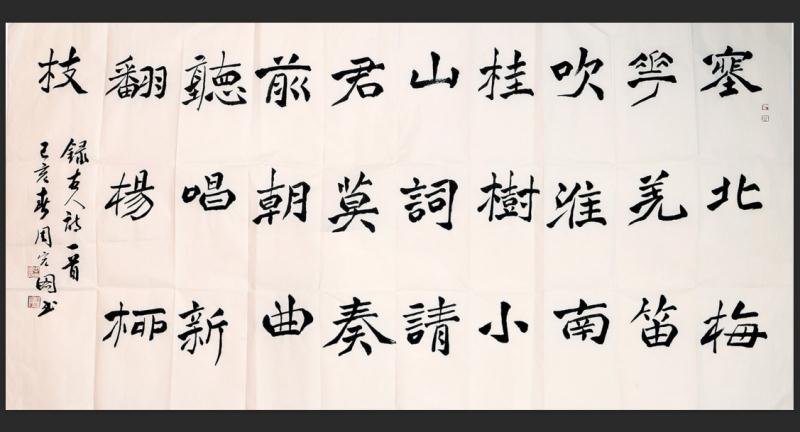 塞北梅
華羌笛
吹淮南
桂樹小
山詞請
君莫奏
前朝曲
聽唱新
翻楊柳
枝
録古人詩一首
己亥春周宏國书